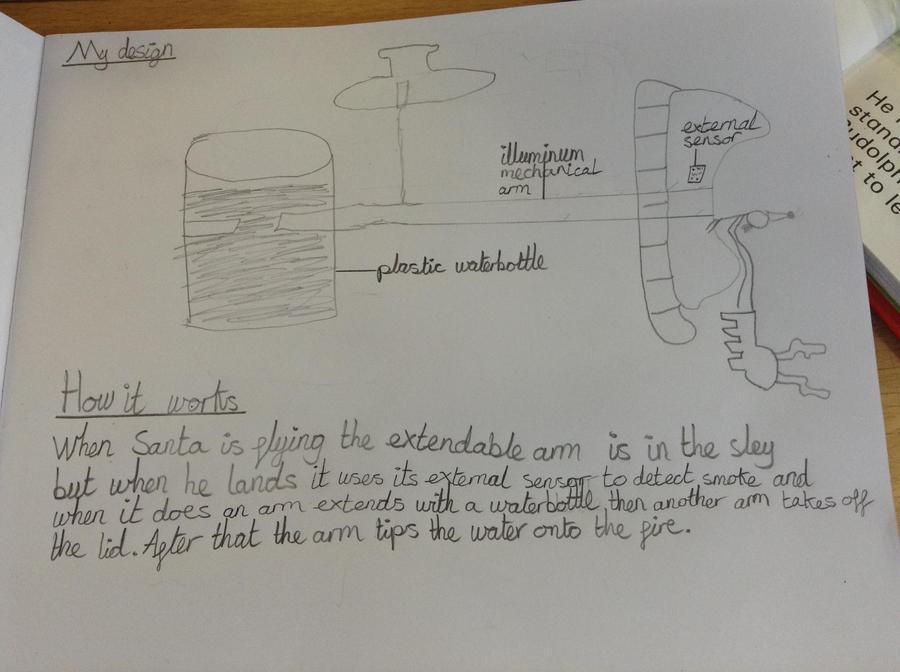 My design
external
sensor
illuminum
mechanical
arm
plastic waterbottle
How it works
When Santa is flying the extendable arm is in the sley
but when he lands it uses its external sensor to detect smoke and
when it does an arm extends with a waterbottle, then another arm takes off
the lid. After that the arm tips the water onto the fire.
He
stand
udolph
t to le